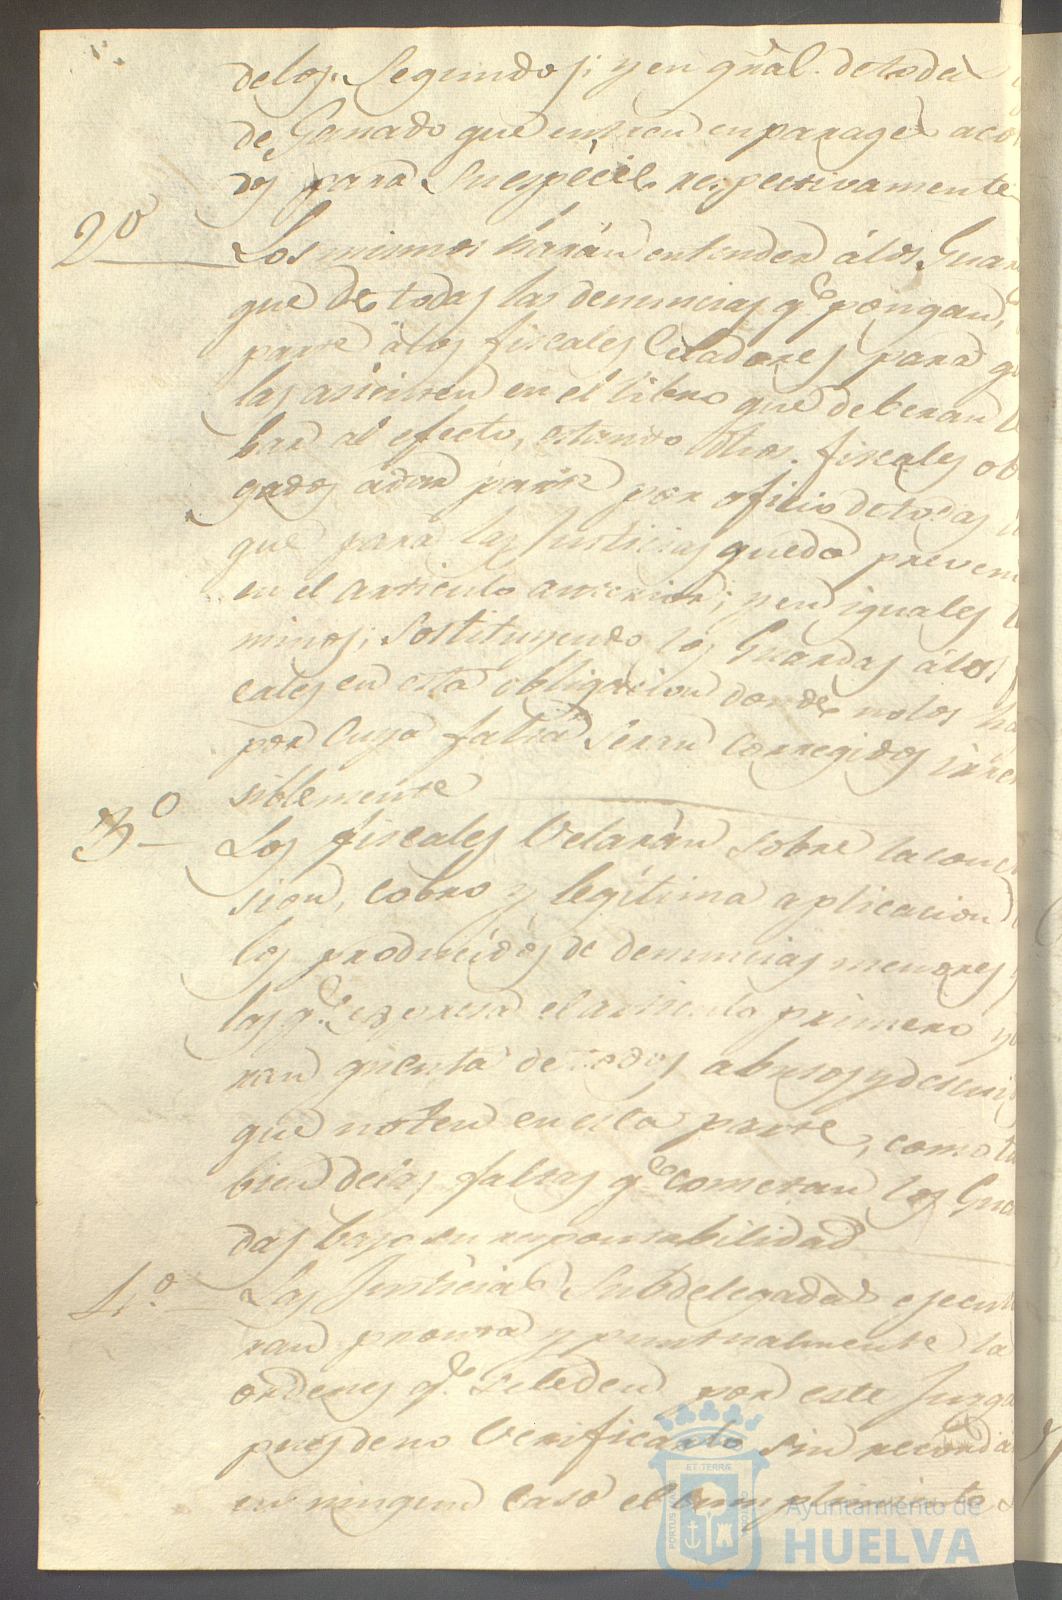 de los Segundos; y en gral. de toda
de Ganado que entren en parages aco
dos para su especie respectivamente
2º Los mismos harán entender á los Guar
que de todas las denuncias q.e pongan,
parte á los fiscales Celadores para q
las asienten en el libro que deberan
bar al efecto, estando dhos. fiscales ob
gados á dar parte por oficio de todas
que para las Justicias queda preveni
en el articulo anterior; y en iguales
minos; Sostituyendo los Guardas á los
cales en esta obligacion donde no los ha
por cuya falta serán corregidos irre
siblemente
3º Los fiscales Velarán sobre la
sion, cobro y legítima aplicacion
los producidos de denuncias menores
las q.e expresa el articulo primero y
ran cuenta de todos abusos y descui
que noten en esta parte, como ta
bien de las faltas q.e cometan los Gua
das bajo su responsabilidad
4.º Las Justicias Subdelegadas ejecu
ran pronta y puntualmente la
ordenes q.e se les den por este Juzga
pues de no Verificarlo sin
en ningun caso el cumplimiento
PORTUS MARIS
ET TERRÆ
CUSTODIA
Ayuntamiento de
HUELVA